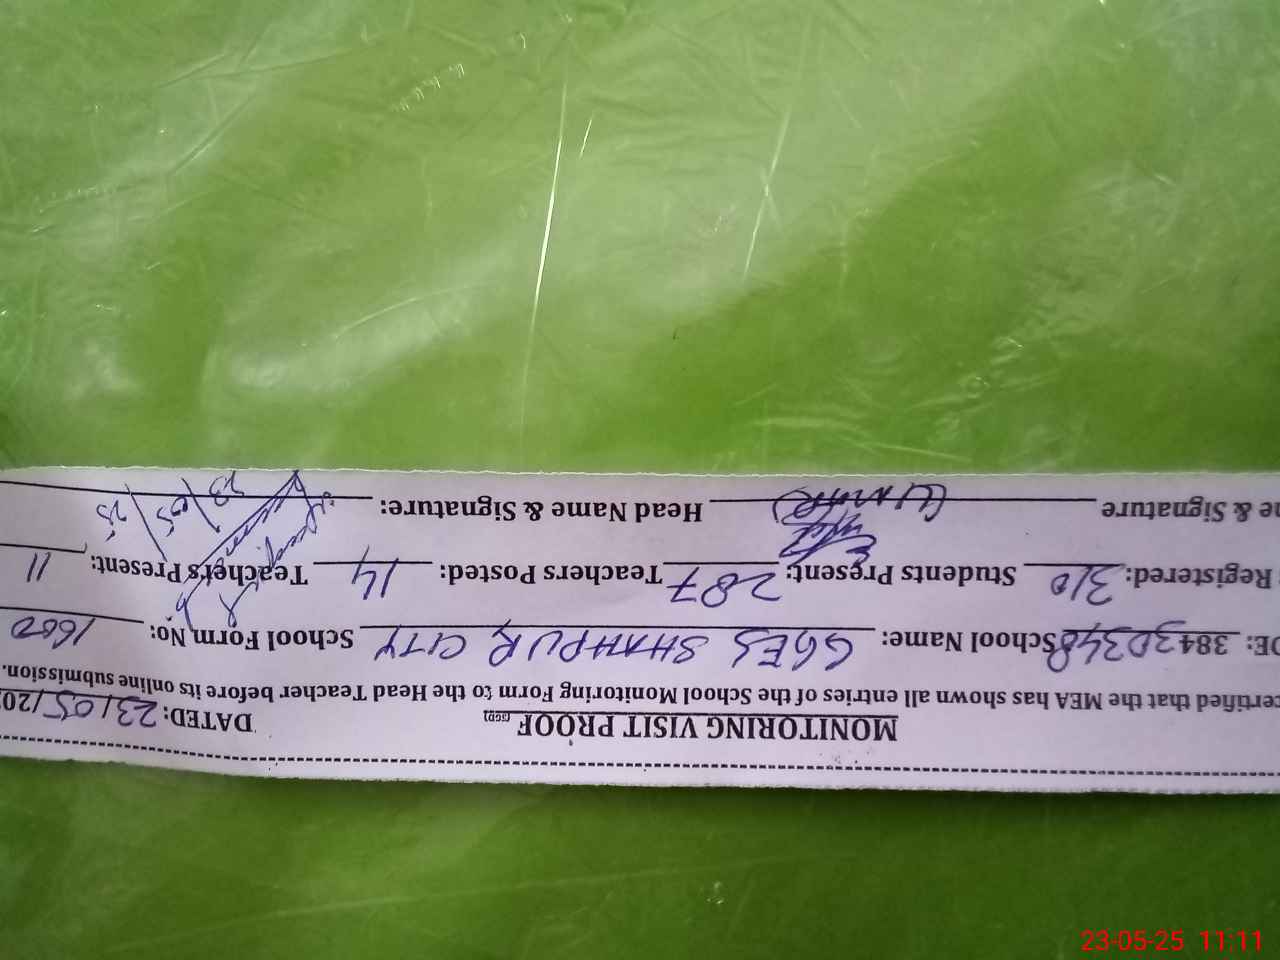 MONITORING VISIT PROOF (SCP) DATED: 23/05/20
ertified that the MEA has shown all entries of the School Monitoring Form to the Head Teacher before its online submission.
DE: 38430348 School Name: GGES SHAHPUR CITY School Form No: 1600
Registered: 310 Students Present: 287 Teachers Posted: 14 Teachers Present: 11
ne & Signature Head Name & Signature:
23/05/25
23-05-25 11:11